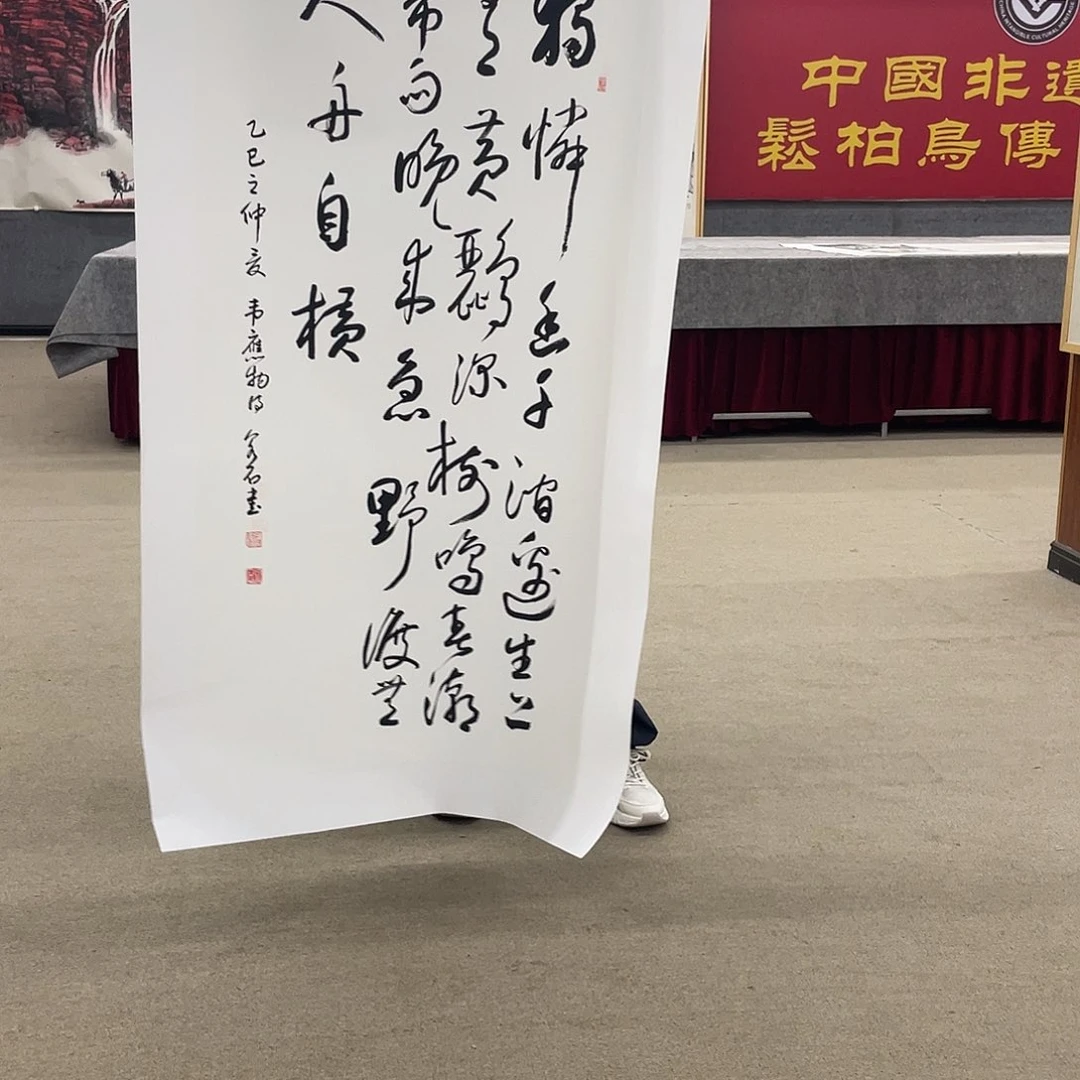 獨憐幽草澗邊生上
有黃鸝深樹鳴春潮
帶雨晚來急野渡無
人舟自橫
乙巳之仲夏 韦應物诗 石書
中國非遺
鬆柏鳥傳